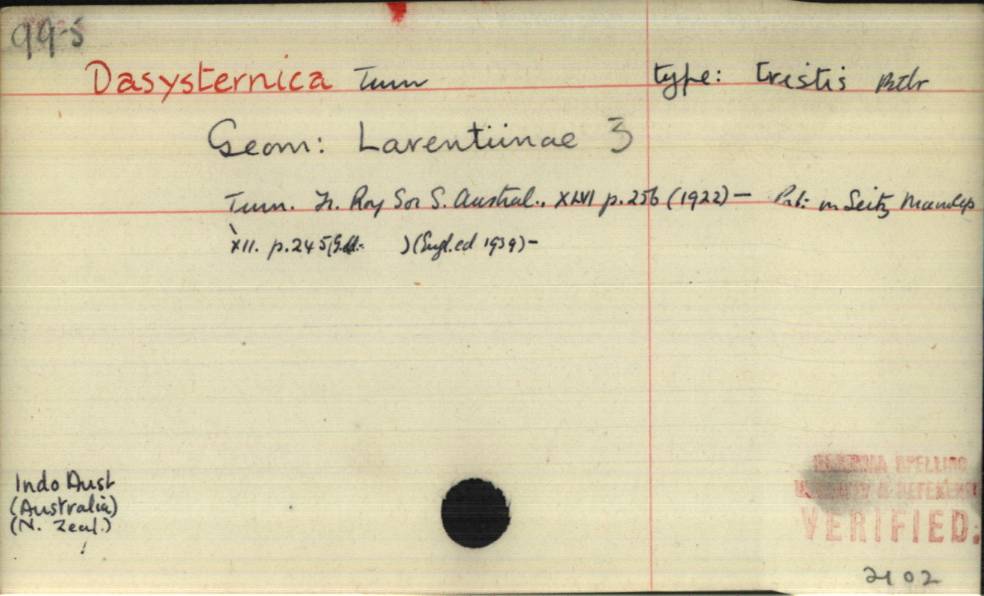 99-5
Dasysternica Turn type: tristis Btlr
Geom: Larentiinae 3
Turn. Tr. Roy Soc S. Austral., XLVI p.256 (1922) — in Seitz Macrolep
XII. p.245 (Engl. ed 1939) -
Indo Aust
(Australia)
(N. Zeal.)
SPELLING
& REFERENCE
VERIFIED.
2102